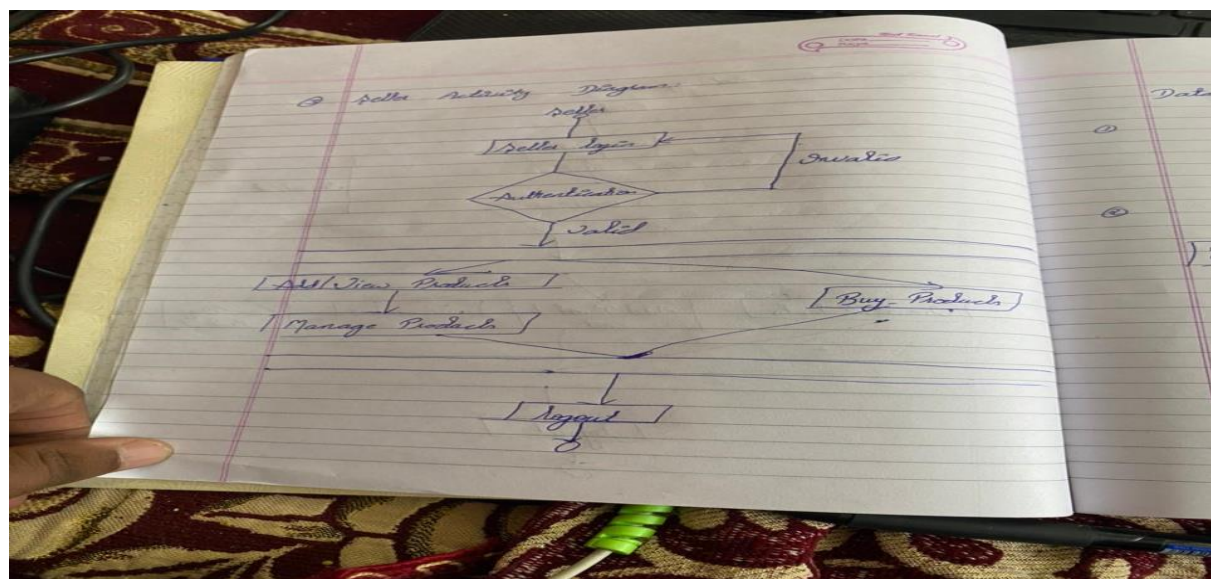 Seller Activity Diagram:
Seller
Seller login
Invalid
Authentication
Valid
Add/View Products
Buy Products
Manage Products
logout
Data